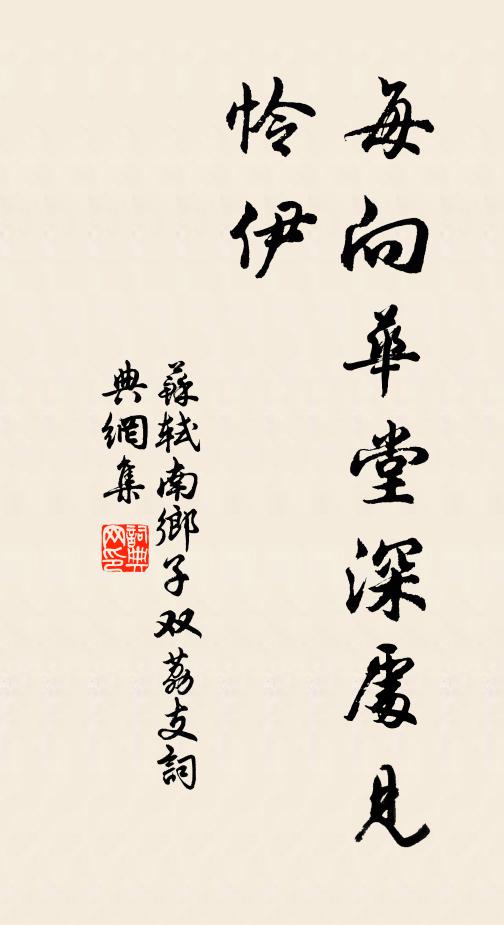 每向華堂深處見
憐伊
蘇軾南鄉子双荔支詞
典網集
詞典
网印